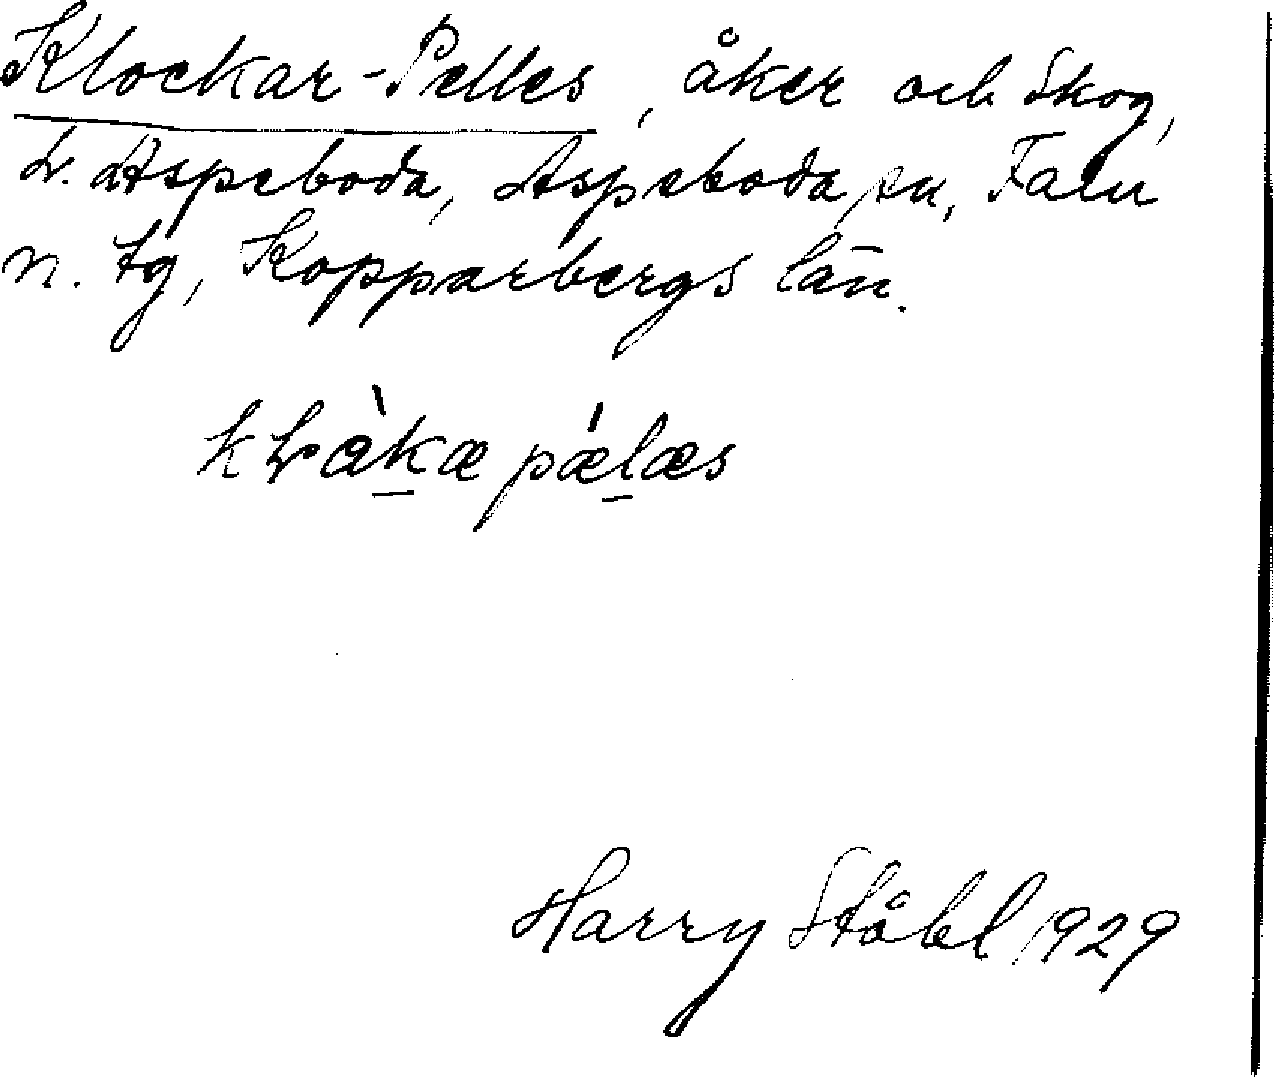 Klockar-Pelles, åker och skog,
L. Aspeboda, Aspeboda sn, Falu
n. tg, Kopparbergs län.
kLàkæ pǽlæs
Harry Ståhl 1929